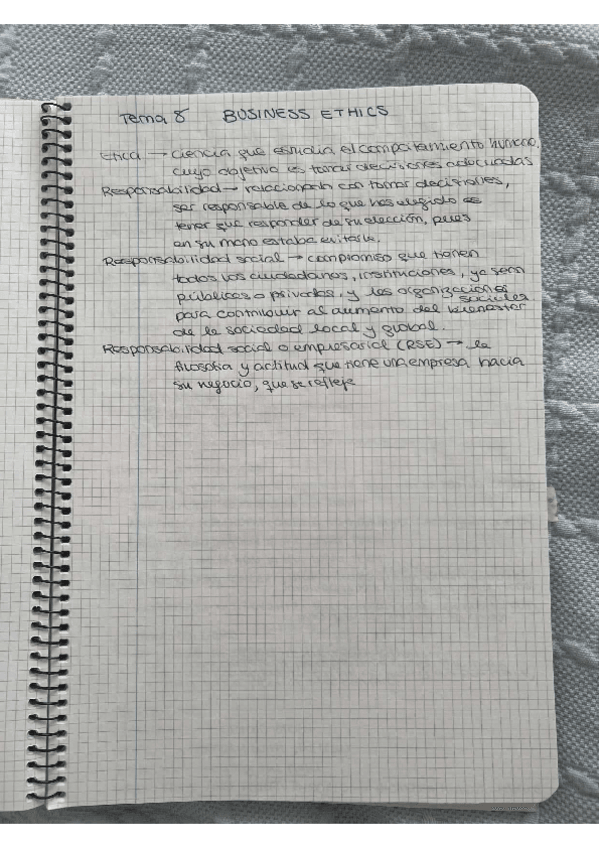 Tema 8 BUSINESS ETHICS
Etica → ciencia que estudia el comportamiento humano,
cuyo objetivo es tomar decisiones adecuadas
Responsabilidad → relacionarla con tomar decisiones,
ser responsable de lo que has elegido es
tener que responder de su elección, pues
en su mano estaba evitarla.
Responsabilidad social → compromiso que tienen
todos los ciudadanos, instituciones, ya sean
públicas o privadas, y las organizaciones
sociales
para contribuir al aumento del bienestar
de la sociedad local y global.
Responsabilidad social o empresarial (RSE) → la
filosofía y actitud que tiene una empresa hacia
su negocio, que se refleje